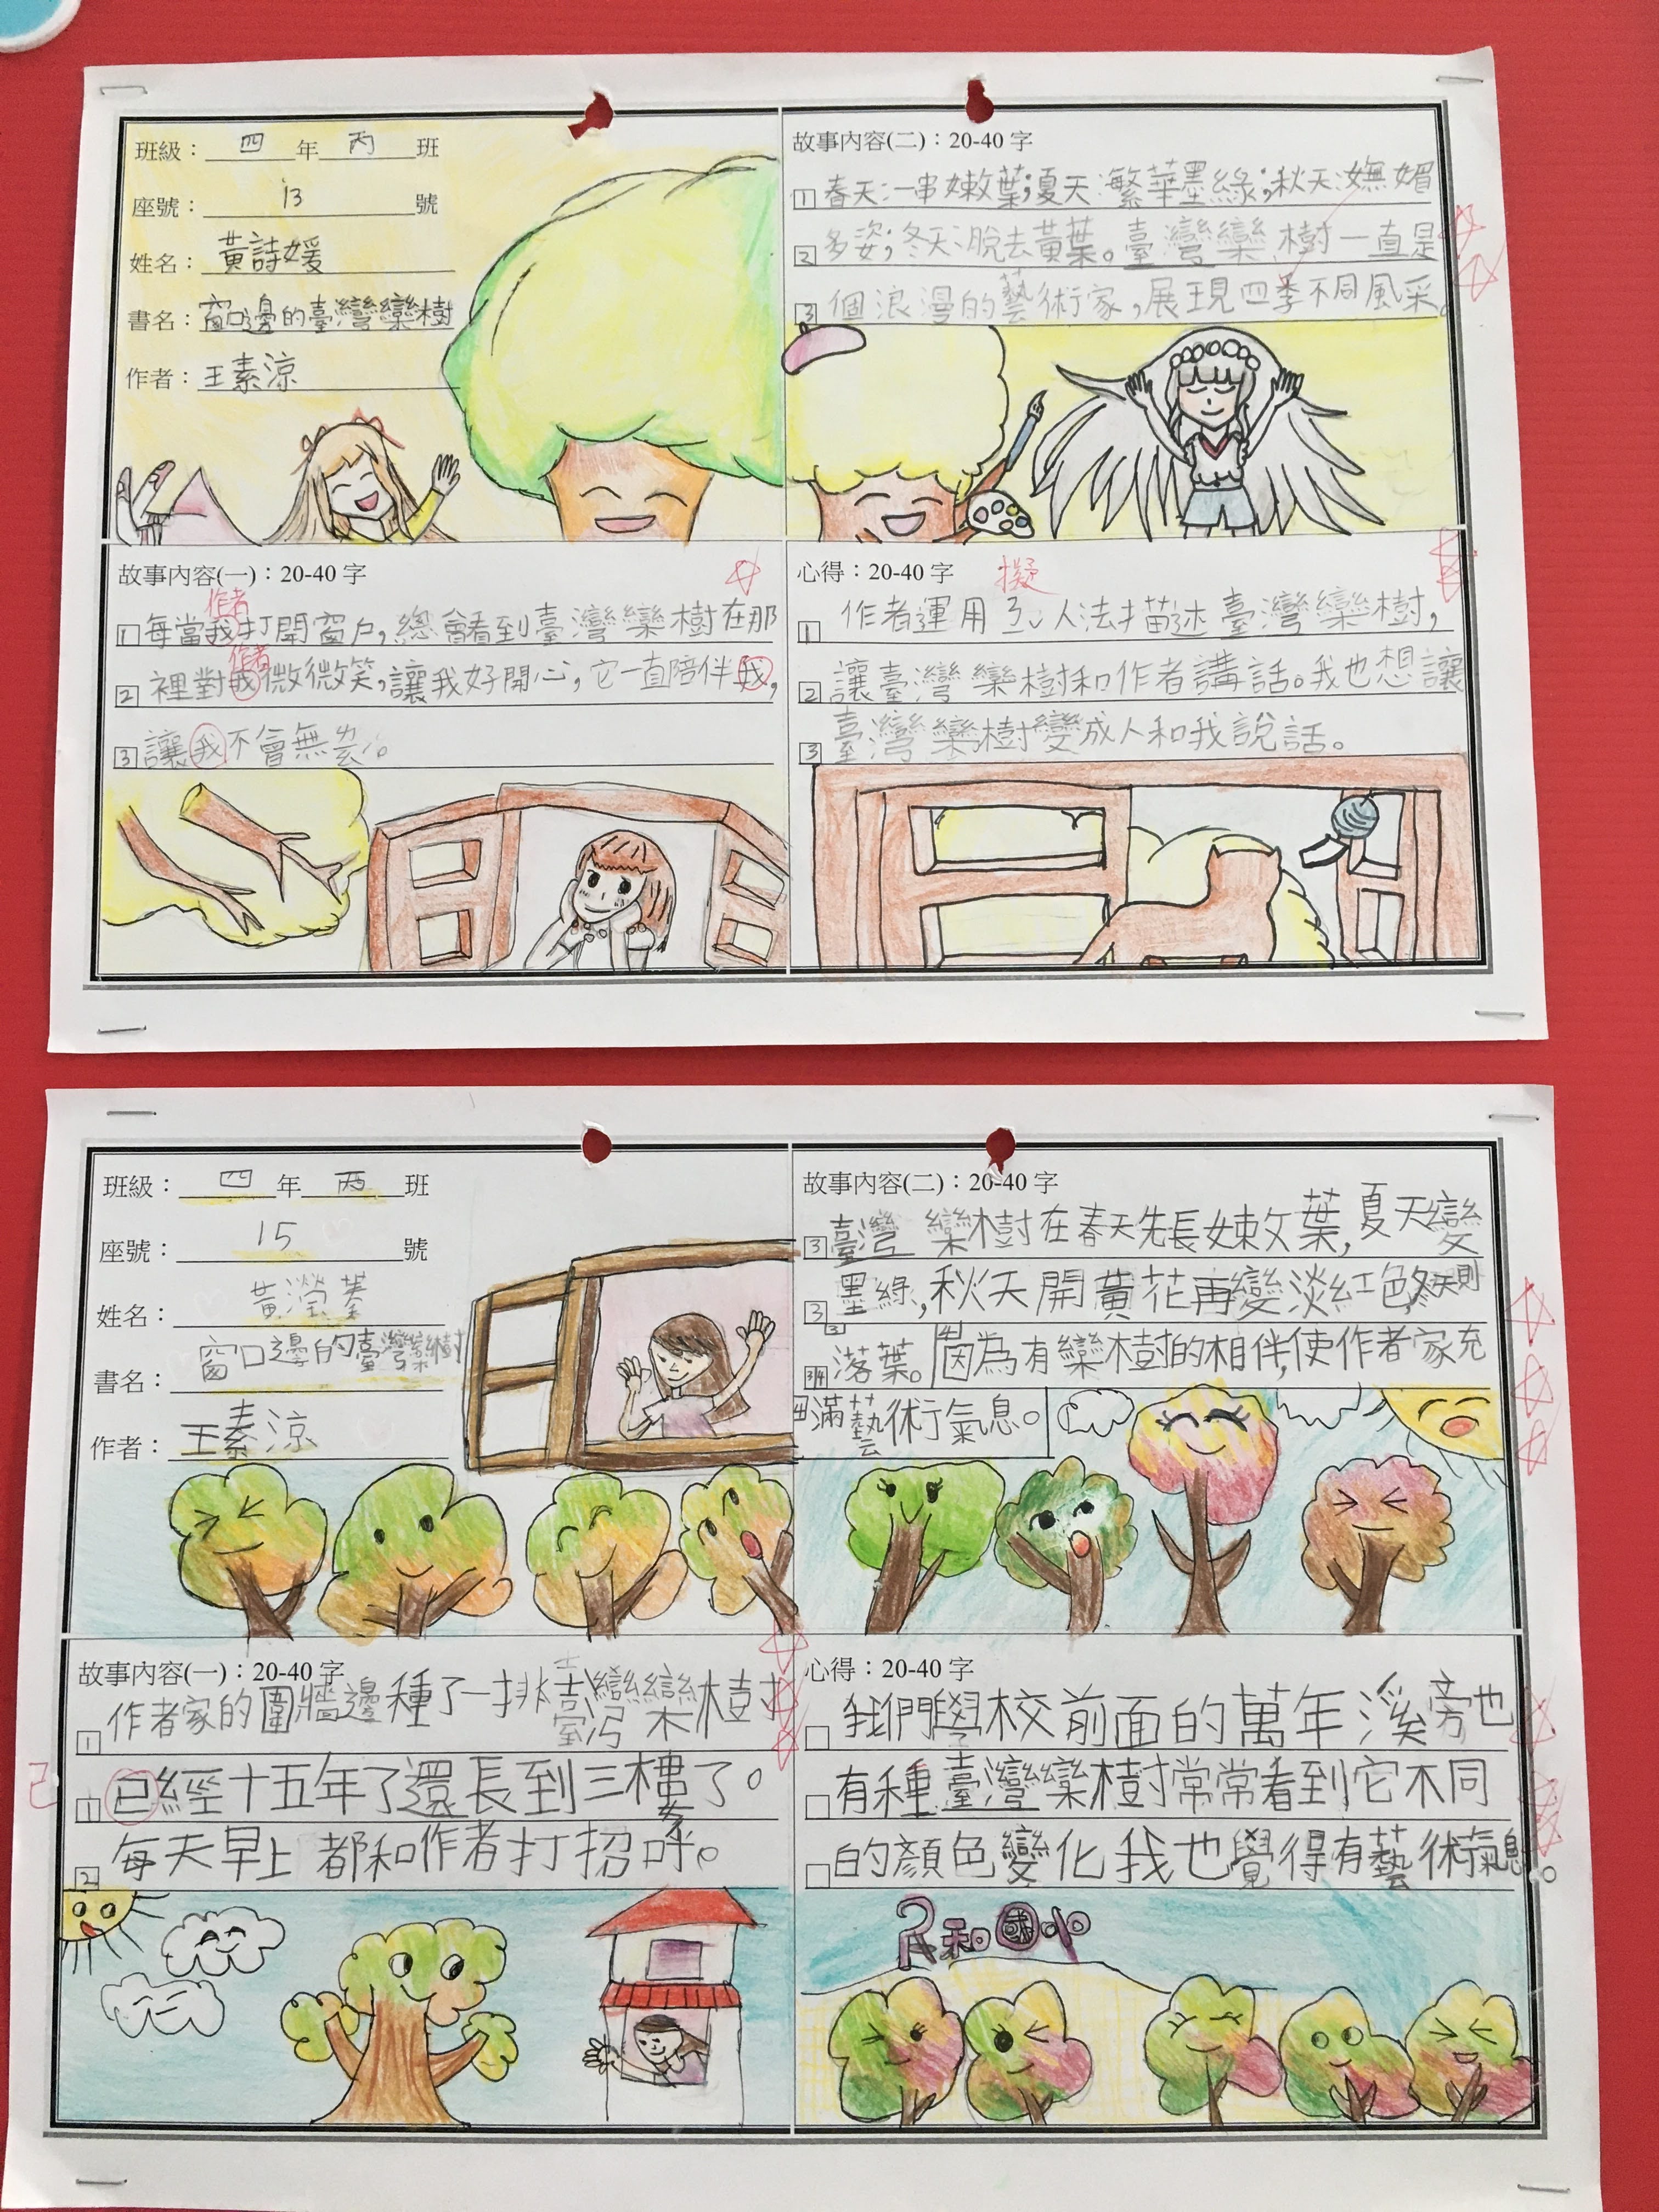 班級：四年丙班
座號：13號
姓名：黃詩媛
書名：窗口邊的臺灣欒樹
作者：王素涼
故事內容(二)：20-40 字
1 春天:一串嫩葉;夏天:繁華墨綠;秋天:嫵媚
2 多姿;冬天:脫去黃葉。臺灣欒樹一直是
3 個浪漫的藝術家,展現四季不同風采。
故事內容(一)：20-40 字
作者
1 每當我打開窗戶,總會看到臺灣欒樹在那
作者
2 裡對我微微笑,讓我好開心,它一直陪伴我,
3 讓我不會無ㄌ。
心得：20-40 字
擬
1 作者運用ㄋㄧˇ人法描述臺灣欒樹,
2 讓臺灣欒樹和作者講話。我也想讓
3 臺灣欒樹變成人和我說話。
班級：四年丙班
座號：15號
姓名：黃瀅蓁
書名：窗口邊的臺灣欒樹
作者：王素涼
故事內容(二)：20-40 字
3 臺灣欒樹在春天先長嫩葉,夏天變
3 墨綠,秋天開黃花再變淡紅色,冬天則
3 4 落葉。因為有欒樹的相伴,使作者家充
4 滿藝術氣息。
故事內容(一)：20-40 字
1 作者家的圍牆邊種了一排臺灣欒樹
已
1 已經十五年了還長到三樓了。
2 每天早上都和作者打招呼。
心得：20-40 字
我們學校前面的萬年溪旁也
有種臺灣欒樹常常看到它不同
的顏色變化我也覺得有藝術氣息。
民和國小